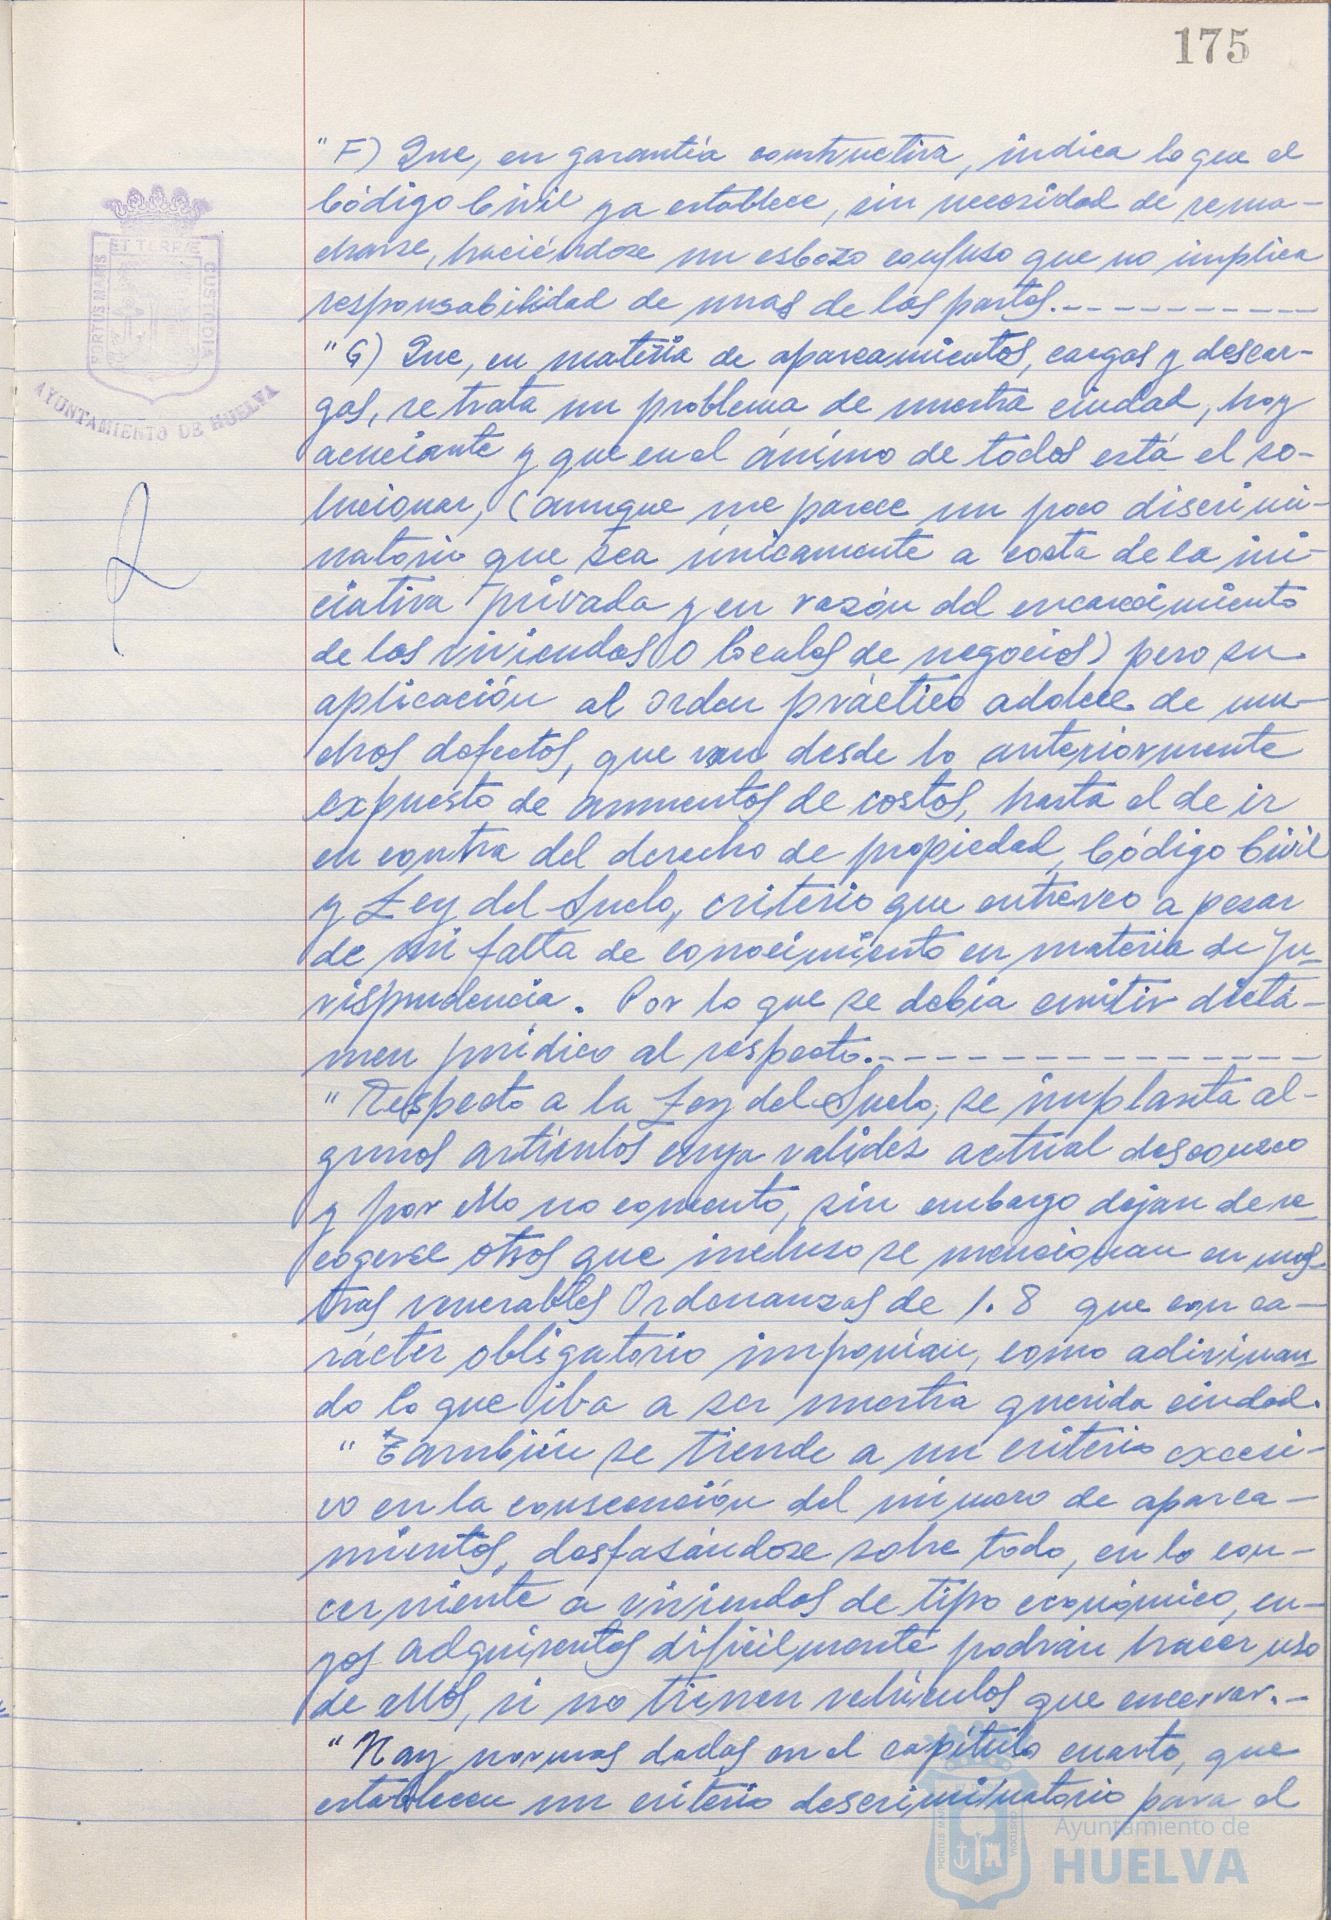 175
"F) Que, en garantía constructiva, indica lo que el
Código Civil ya establece, sin necesidad de rema-
charse, haciéndose un esbozo confuso que no implica
responsabilidad de unas de las partes.-----------
"G) Que, en materia de aparcamientos, cargas y descar-
gas, se trata un problema de nuestra ciudad, hoy
acuciante y que en el ánimo de todos está el so-
lucionar, (aunque me parece un poco discrimi-
natorio que sea únicamente a costa de la ini-
ciativa privada y en razón del encarecimiento
de las viviendas o locales de negocios) pero su
aplicación al orden práctico adolece de mu-
chos defectos, que van desde lo anteriormente
expuesto de aumentos de costos, hasta el de ir
en contra del derecho de propiedad, Código Civil
y Ley del Suelo, criterio que entreveo a pesar
de mi falta de conocimiento en materia de Ju-
risprudencia. Por lo que se debía emitir dictá-
men jurídico al respecto.---------------
"Respecto a la Ley del Suelo, se implanta al-
gunos artículos cuya validez actual desconozco
y por ello no comento, sin embargo dejan de re-
cogerse otros que incluso se mencionan en nues-
tras venerables Ordenanzas de 1.8 que con ca-
rácter obligatorio imponían, como adivinan-
do lo que iba a ser nuestra querida ciudad.
"También se tiende a un criterio excesi-
vo en la consecución del número de aparca-
mientos, desfasándose sobre todo, en lo con-
cerniente a viviendas de tipo económico, cu-
yos adquirentes dificilmente podrán hacer uso
de ellos, si no tienen vehículos que encerrar.-
"Hay normas dadas en el capítulo cuarto, que
establecen un criterio descriminatorio para el
PORTUS MARIS
ET TERRAE
CUSTODIA
AYUNTAMIENTO DE HUELVA
Ayuntamiento de
HUELVA